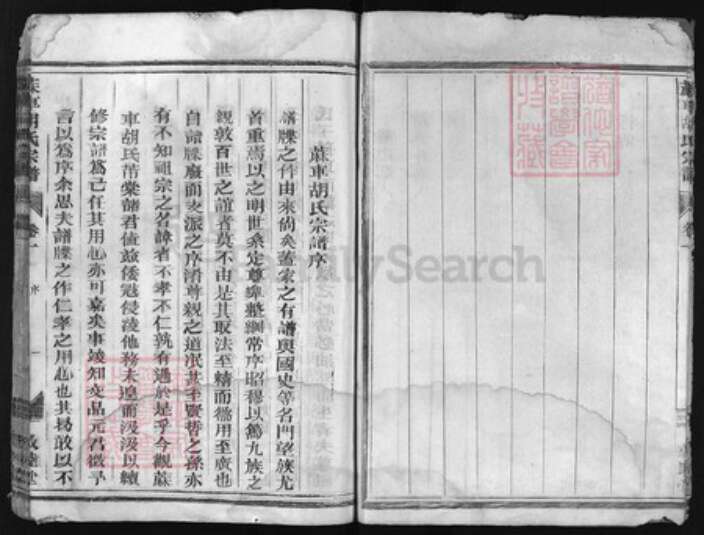 蔴車胡氏宗譜序
譜牒之作由來尙矣蓋家之有譜與國史等名門望族尤
首重焉以之明世系定尊卑整綱常序昭穆以篤九族之
親敦百世之誼者莫不由是其取法至精而爲用至廣也
自譜牒廢而支派之序淆尊親之道泯甚至賢哲之孫亦
有不知祖宗之名諱者不孝不仁孰有過於是乎今觀蔴
車胡氏芾棠諸君值茲倭寇侵淩他務未遑而汲汲以續
修宗譜爲己任其用心亦可嘉矣事竣知交品元君徵予
言以爲序余思夫譜牒之作仁孝之用心也其曷敢以不
蔴車胡氏宗譜
卷一
序
一
敦睦堂
蔴車胡氏宗譜
卷
FamilySearch